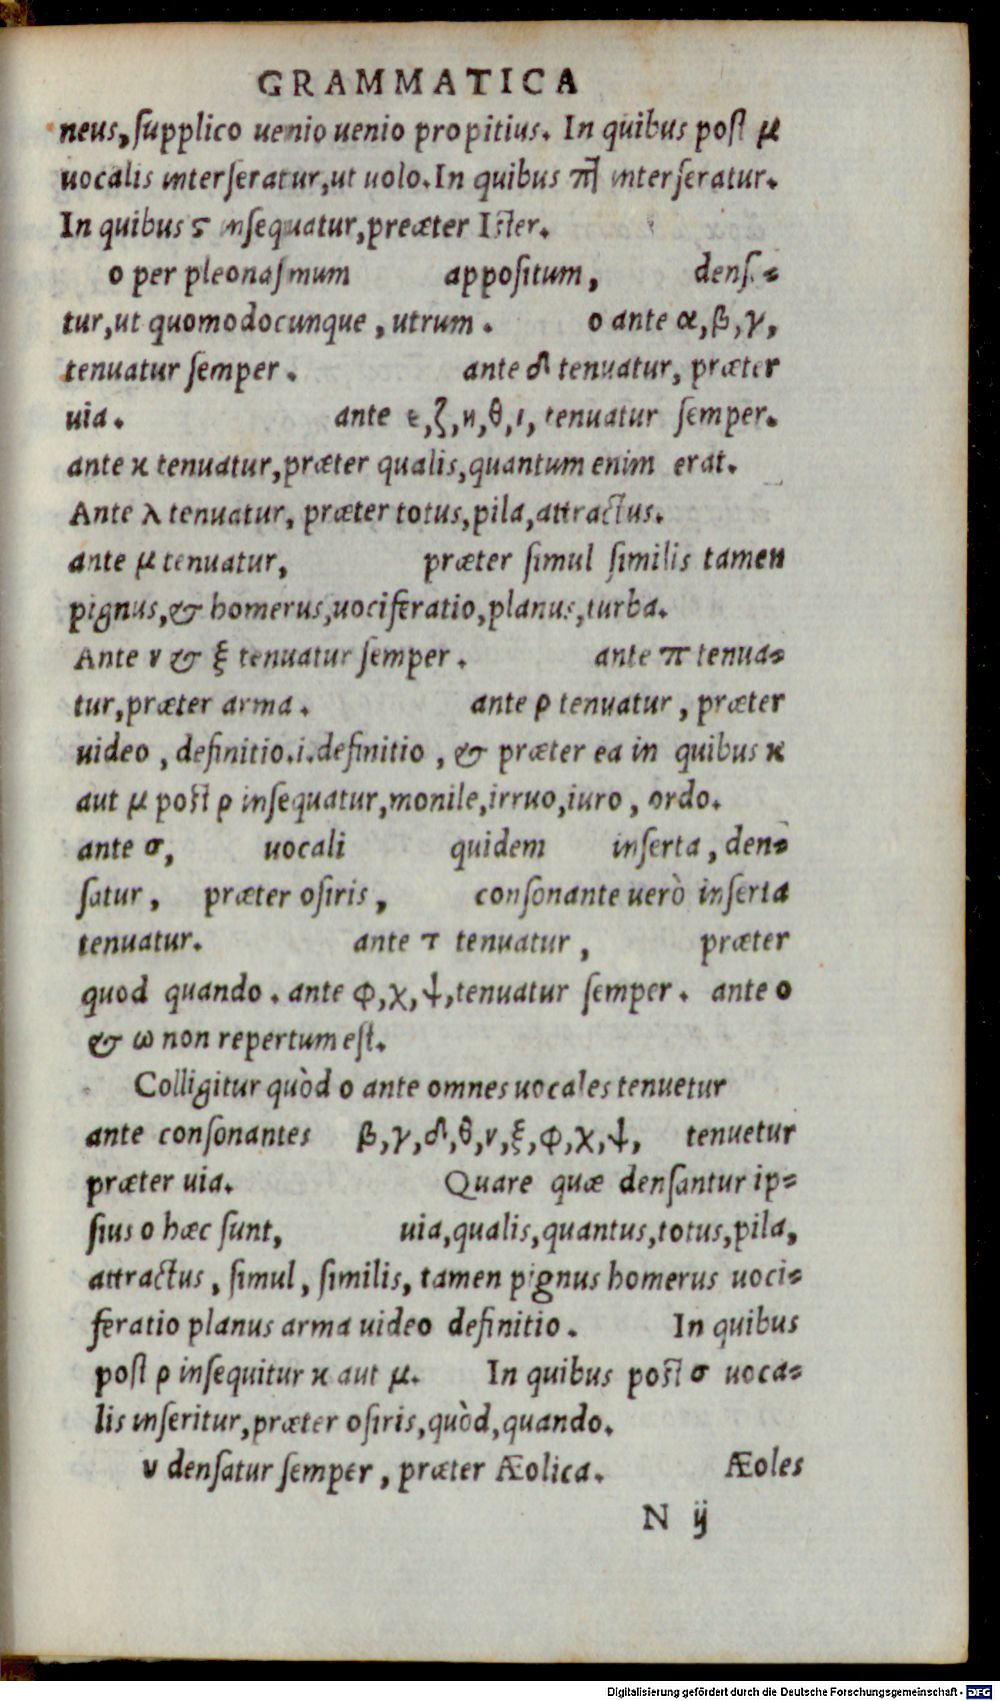 GRAMMATICA
neus, ſupplico uenio uenio propitius. In quibus poſt μ
uocalis interſeratur, ut uolo. In quibus interſeratur.
In quibus ϛ inſequatur, preæter Iſter.
o per pleonaſmum appoſitum, denſa-
tur, ut quomodocunque, utrum. o ante α, β, γ,
tenuatur ſemper. ante δ tenuatur, præter
uia. ante ε, ζ, η, θ, ι, tenuatur ſemper.
ante κ tenuatur, præter qualis, quantum enim erat.
Ante λ tenuatur, præter totus, pila, attractus.
ante μ tenuatur, præter ſimul ſimilis tamen
pignus, & homerus, uociferatio, planus, turba.
Ante ν & ξ tenuatur ſemper. ante π tenua-
tur, præter arma. ante ρ tenuatur, præter
uideo, definitio.i.definitio, & præter ea in quibus κ
aut μ poſt ρ inſequatur, monile, irruo, iuro, ordo.
ante σ, uocali quidem inſerta, den-
ſatur, præter oſiris, conſonante uerò inſerta
tenuatur. ante τ tenuatur, præter
quod quando. ante φ, χ, ψ, tenuatur ſemper. ante o
& ω non repertum eſt.
Colligitur quòd o ante omnes uocales tenuetur
ante conſonantes β, γ, δ, θ, ν, ξ, φ, χ, ψ, tenuetur
præter uia. Quare quæ denſantur ip-
ſius o hæc ſunt, uia, qualis, quantus, totus, pila,
attractus, ſimul, ſimilis, tamen pignus homerus uoci-
feratio planus arma uideo definitio. In quibus
poſt ρ inſequitur κ aut μ. In quibus poſt σ uoca-
lis inſeritur, præter oſiris, quòd, quando.
υ denſatur ſemper, præter Æolica. Æoles
N ij
Digitalisierung gefördert durch die Deutsche Forschungsgemeinschaft - DFG